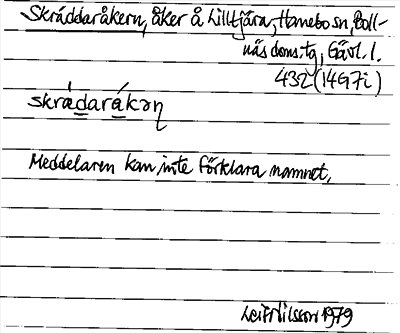 Skräddaråkern, åker å Lilltjära, Hanebo sn, Boll-
näs doms.tg, Gävl. l.
432 (14G7i)
skrädaråkən
Meddelaren kan inte förklara namnet.
Leif Nilsson 1979